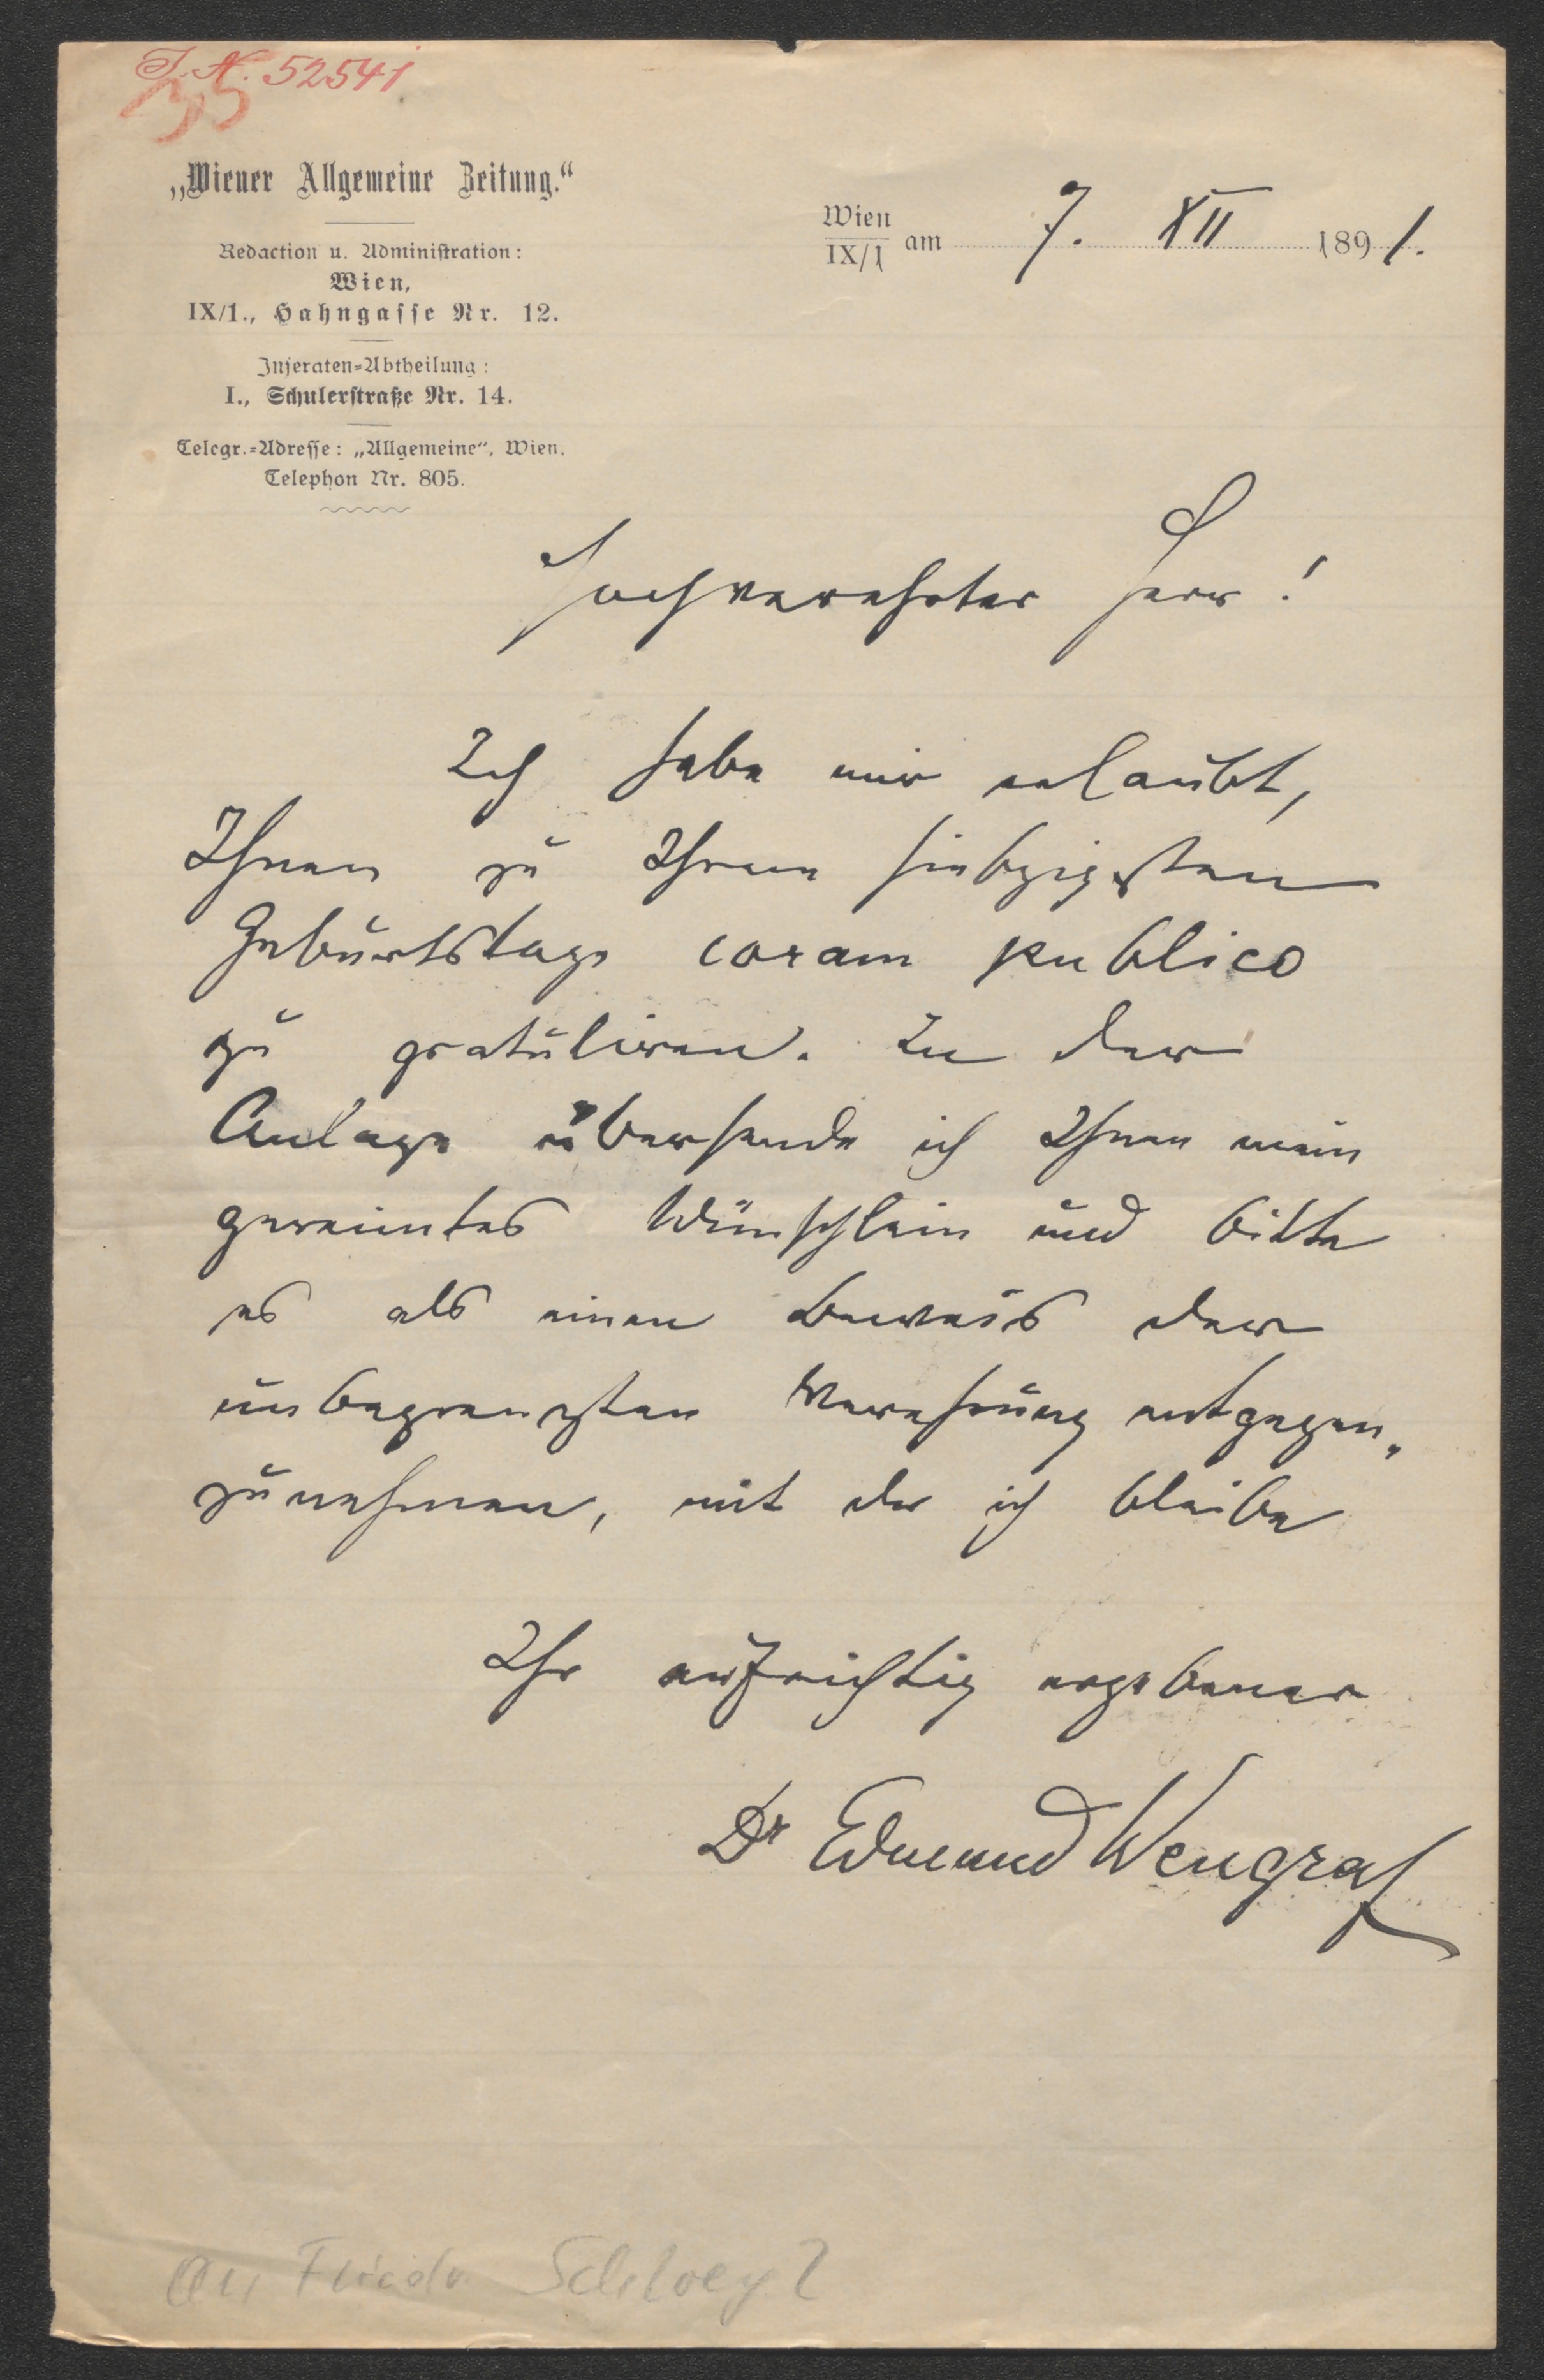 J. N. 52541
35
„Wiener Allgemeine Zeitung.“
Redaction u. Administration:
Wien,
IX/1., Hahngasse Nr. 12.
Inseraten-Abtheilung:
I., Schulerstraße Nr. 14.
Telegr.-Adresse: „Allgemeine“, Wien.
Telephon Nr. 805.
Wien
IX/1 am 7. XII 1891.
Hochverehrter Herr!
Ich habe mir erlaubt,
Ihnen zu Ihrem siebzigsten
Geburtstage coram publico
zu gratuliren. In der
Anlage übersende ich Ihnen mein
gereimtes Wünschlein und bitte
es als einen Beweis der
unbegrenzten Verehrung entgegen-
zunehmen, mit der ich bleibe
Ihr aufrichtig ergebener
Dr Edmund Wengraf
an Friedr. Schlögl